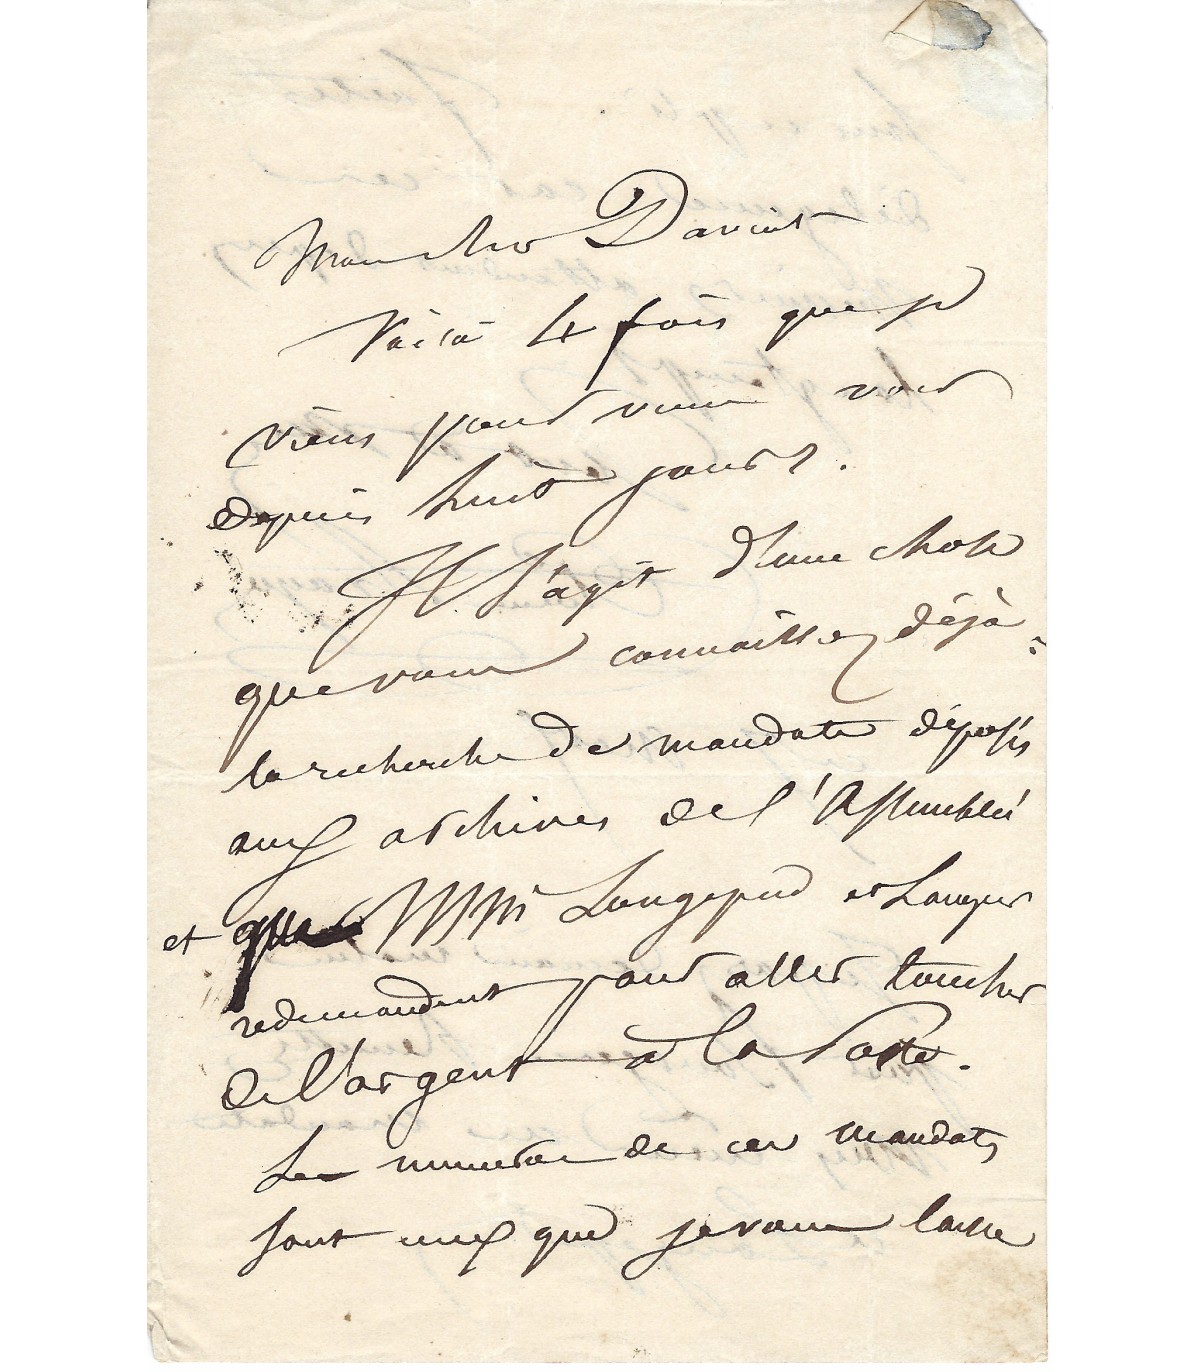 Mon cher Dariat
Voici 4 fois que je
viens pour vous voir
depuis huit jours.
Il s'agit d'une chose
que vous connaissez déjà :
la recherche de mandats déposés
aux archives de l'Assemblée
et que MMrs Longepied et Laugier
redemandent pour aller toucher
de l'argent à la Poste.
Les numéros de ces mandats
sont ceux que je vous laisse